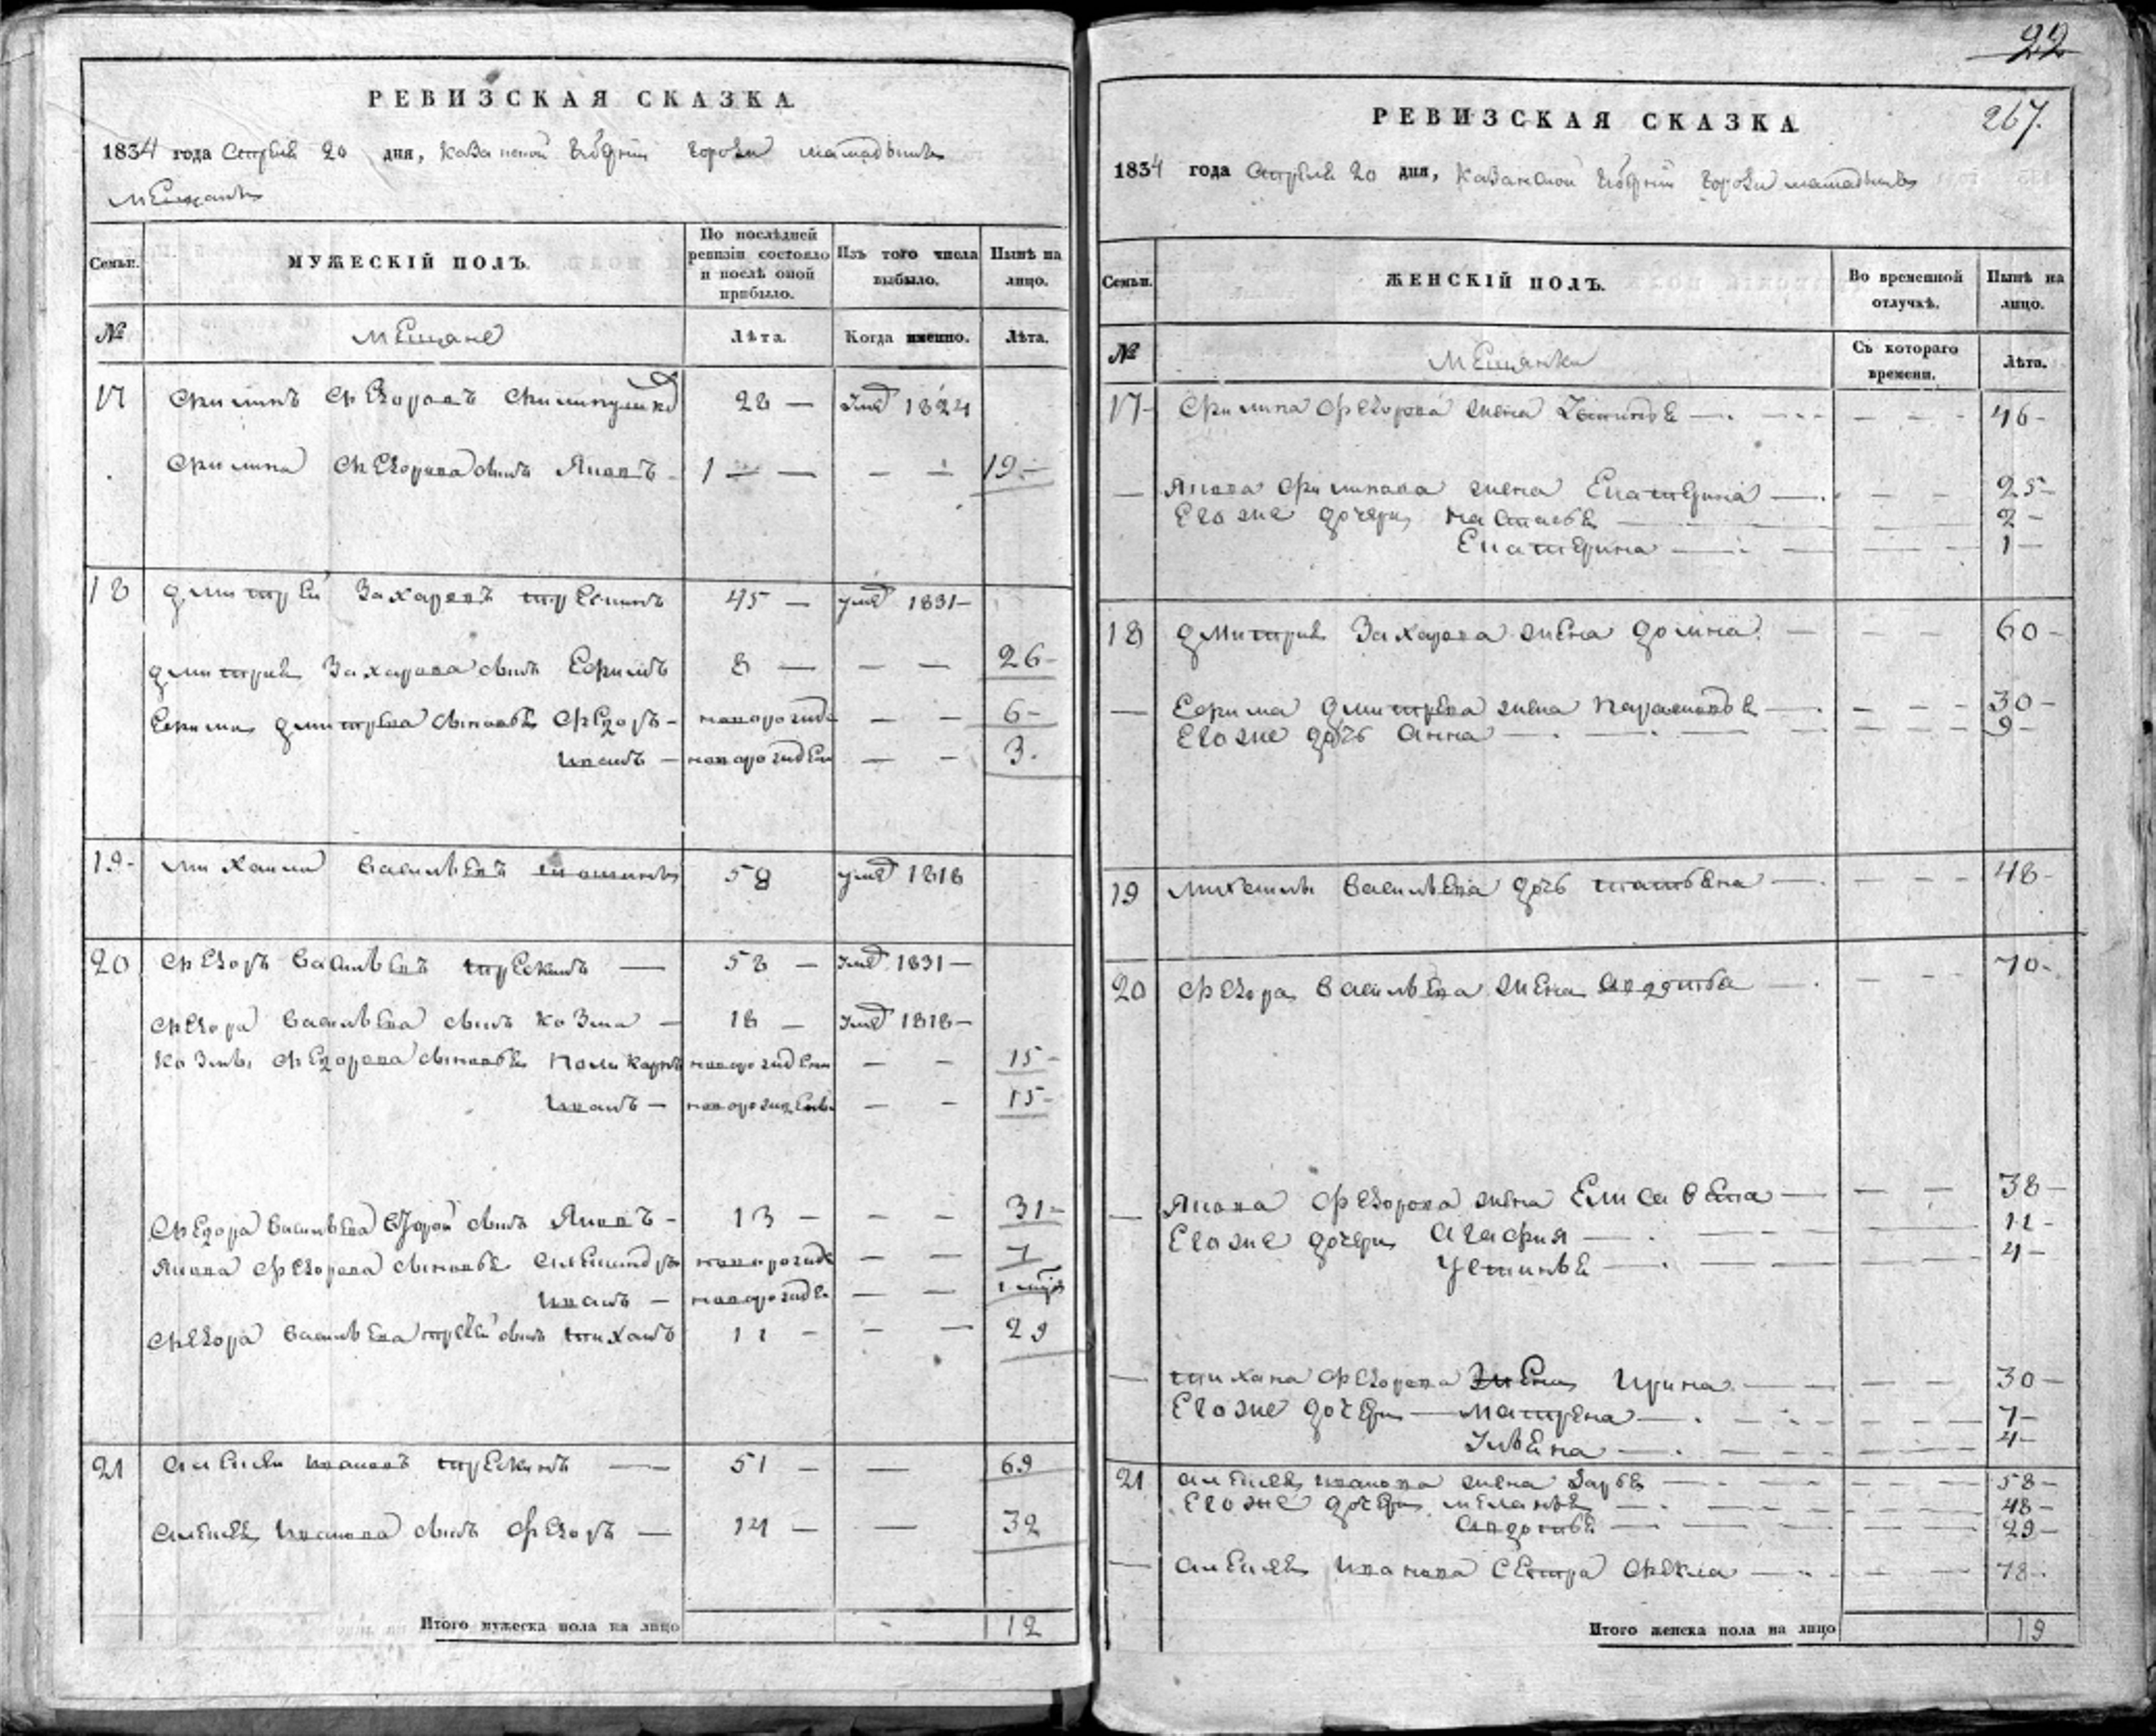 РЕВИЗСКАЯ СКАЗКА.
1834 года Апреля 20 дня, Казанской губернии города Мамадыша
мещанъ
Семьи. МУЖЕСКІЙ ПОЛЪ. По послѣдней ревизіи состояло и послѣ оной прибыло. Изъ того числа выбыло. Нынѣ на лицо.
№ Мещане Лѣта. Когда именно. Лѣта.
17 Филипъ Федоровъ 28 — умр 1824
Филипа Федорова сынъ Яковъ - 1 — — — 19 -
18 Дмитрей Захаровъ 45 — умр 1831 -
Дмитрия Захарова сынъ Ефимъ 8 — — — 26 -
Ефима Дмитрева сыновья Федоръ - новорожде — — 6 -
Иванъ - новорожден — - 3.
19 - Михаила Васильевъ 58 умр 1818
20 Федоръ Васильевъ Трескинъ — 58 - умр 1831 -
Федора Васильева сынъ Козма — 18 - умр 1818 -
Козмы Федорова сыновья Поликарпъ новорожден — - 15 -
Иванъ - новорожден — - 15 -
Федора Васильева второй сынъ Яковъ - 13 - — - 31 -
Якова Федорова сыновья Александръ новорожд — — 7
Иванъ - новорожде — —
Федора Васильева третей сынъ Тиханъ 11 - - — 29
21 Алексей Ивановъ Трескинъ — 51 - — 69
Алексея Иванова сынъ Федоръ — 14 - — 32
Итого мужеска пола на лицо 12
22
267.
РЕВИЗСКАЯ СКАЗКА.
1834 года Апреля 20 дня, Казанской губернии города Мамадыша
Семьи. ЖЕНСКІЙ ПОЛЪ. Во временной отлучкѣ. Нынѣ на лицо.
№ Мещанки Съ котораго времени. Лѣта.
17 - Филипа Федорова жена 46 -
— Якова Филипова жена Екатерина — 25 -
Его же дочери Наталья — 2 -
Екатерина — 1 -
18 Дмитрия Захарова жена Домна — 60 -
— Ефима Дмитрева жена Парасковья — 30 -
Его же дочь Анна — 9 -
19 Михаилы Васильева дочь Татьяна — 48 -
20 Федора Васильева жена Авдотья — 70 -
— Якова Федорова жена Елисавета — 38 -
Его же дочери Агафия — 11 -
Устинья — 4 -
— Тихана Федорова жена Ирина — 30 -
Его же дочери — Матрена — 7 -
Улѣяна — 4 -
21 Алексея Иванова жена Дарья — 58 -
Его же дочери Меланья — 48 -
Авдотья — 29 -
— Алексея Иванова сестра Фекла — 78 -
Итого женска пола на лицо 19